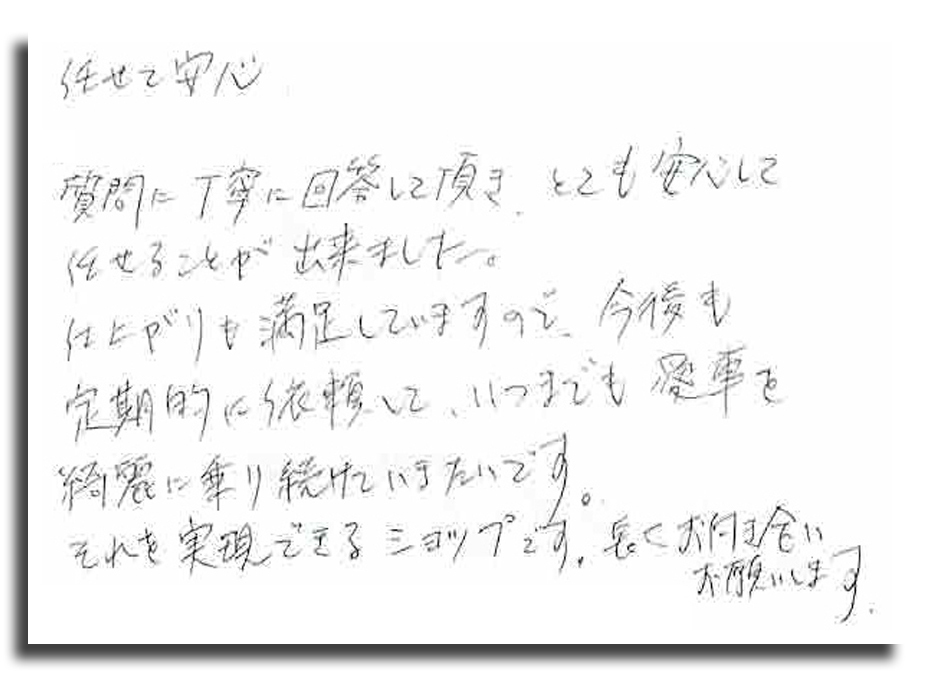 任せて安心
質問に丁寧に回答して頂き、とても安心して
任せることが出来ました。
仕上がりも満足していますので、今後も
定期的に依頼して、いつまでも愛車を
綺麗に乗り続けていきたいです。
それを実現できるショップです。長くお付き合い
お願いします。